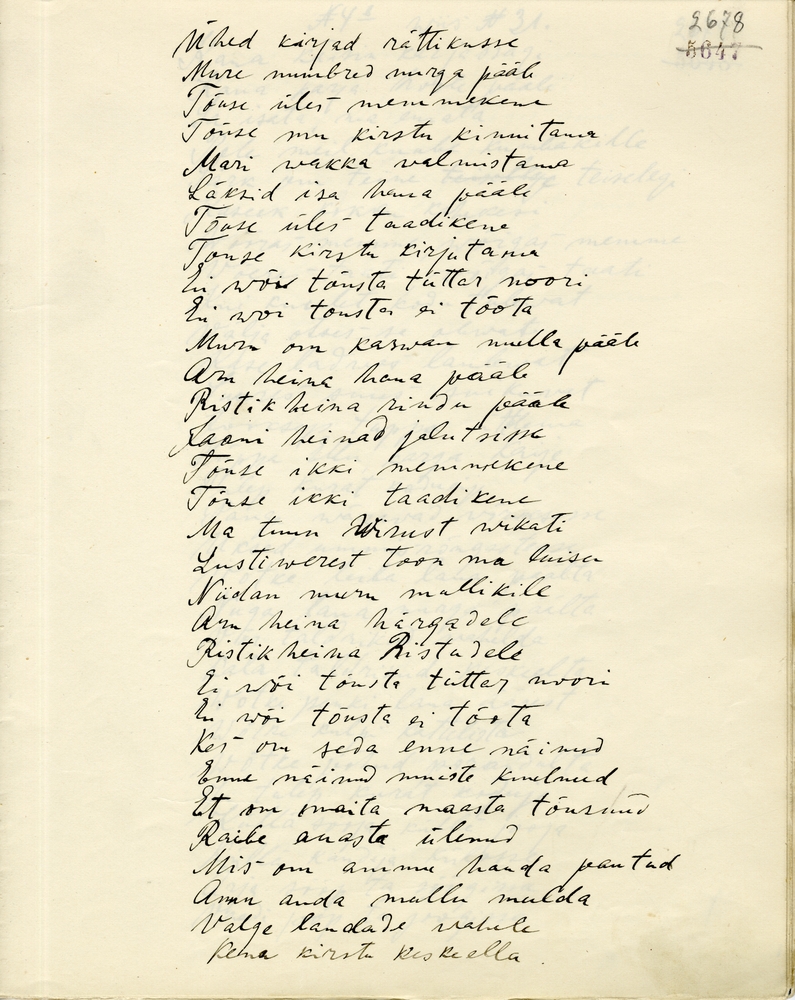 2678
5647
Ühed kirjad rättikusse
Mure numbred nurga pääle
Tõuse üles memmekene
Tõuse mu kirstu kinnitama
Mari wakka walmistama
Läksid isa haua pääle
Tõuse üles taadikene
Touse kirstu kirjutama
Ei wõi tõusta tüttar noori
Ei woi tousta ei tõota
Muru om kaswan mulla pääle
Aru heina haua pääle
Ristikheina rindu pääle
Jaani heinad jalutsisse
Tõuse ikki memmekene
Tõuse ikki taadikene
Ma tuun Wirust wikati
Lustiwerest toon ma luisu
Niidan muru mullikile
Aru heina härgadele
Ristikheina Ristudele
Ei wõi tõusta tüttar noori
Ei wõi tõusta ei tõota
Kes om seda enne näinud
Enne näinud muiste kuulnud
Et om maita maasta tõusnud
Raibe auasta ülenud
Mis om ammu hauda pantud
Ammu auda mullu mulda
Valge laudade wahele
Kena kirstu keskeella.